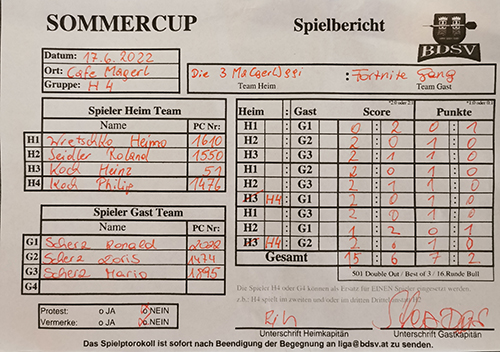 SOMMERCUP Spielbericht
BDSV
Datum: 17.6.2022
Ort: Cafe Magerl
Gruppe: H4
Die 3 Ma(gerl)ggi : Fortnite Gang
Team Heim Team Gast
*2:0 oder 2:1 *1:0 oder 0:1
Spieler Heim Team
Name PC Nr:
H1 Wretschko Heimo 1610
H2 Seidler Roland 1550
H3 Koch Heinz 51
H4 Koch Philip 1476
Spieler Gast Team
Name PC Nr:
G1 Scherz Ronald 2022
G2 Scherz Doris 1474
G3 Scherz Mario 1895
G4
Heim : Gast Score Punkte
H1 G1 0 : 2 0 : 1
H2 G2 2 : 0 1 : 0
H3 G3 2 : 1 1 : 0
H2 G1 2 : 0 1 : 0
H1 G2 2 : 1 1 : 0
H3 H4 G1 2 : 0 1 : 0
H2 G3 2 : 0 1 : 0
H1 G3 1 : 2 0 : 1
H3 H4 G2 2 : 0 1 : 0
Gesamt 15 : 6 7 : 2
501 Double Out / Best of 3 / 16.Runde Bull
Die Spieler H4 oder G4 können als Ersatz für EINEN Spieler eingesetzt werden.
z.b.: H4 spielt im zweiten und oder im dritten
Protest: o JA o NEIN
Vermerke: o JA o NEIN
Unterschrift Heimkapitän Unterschrift Gastkapitän
Das Spielptotokoll ist sofort nach Beendigung der Begegnung an liga@bdsv.at zu senden.